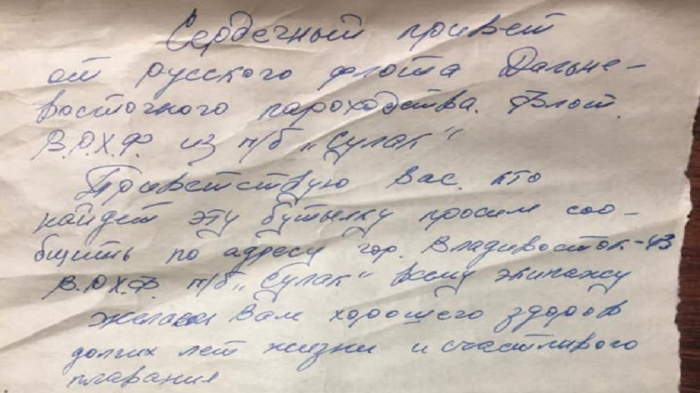 Сердечный привет
от русского флота Дальне-
восточного пароходства. Флот.
В.О.Х.Ф. из п/б „Сулак“
Приветствую Вас кто
найдет эту бутылку просим соо-
бщить по адресу гор. Владивосток-43
В.О.Х.Ф. п/б „Сулак“ всему экипажу
желаем Вам хорошего здоров
долгих лет жизни и счастливого
плавания